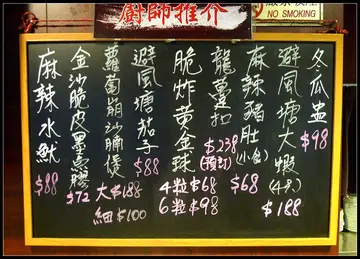 廚師推介
NO SMOKING
冬瓜盅
$98
避風塘大蝦
(4隻)
$188
麻辣豬肚
(小食)
$68
龍躉扣
$238
(預訂)
脆炸黃金球
4粒$68
6粒$98
避風塘茄子
$88
蘿蔔崩沙腩煲
大$188
細$100
金沙脆皮墨魚膠
$72
麻辣水魷
$88